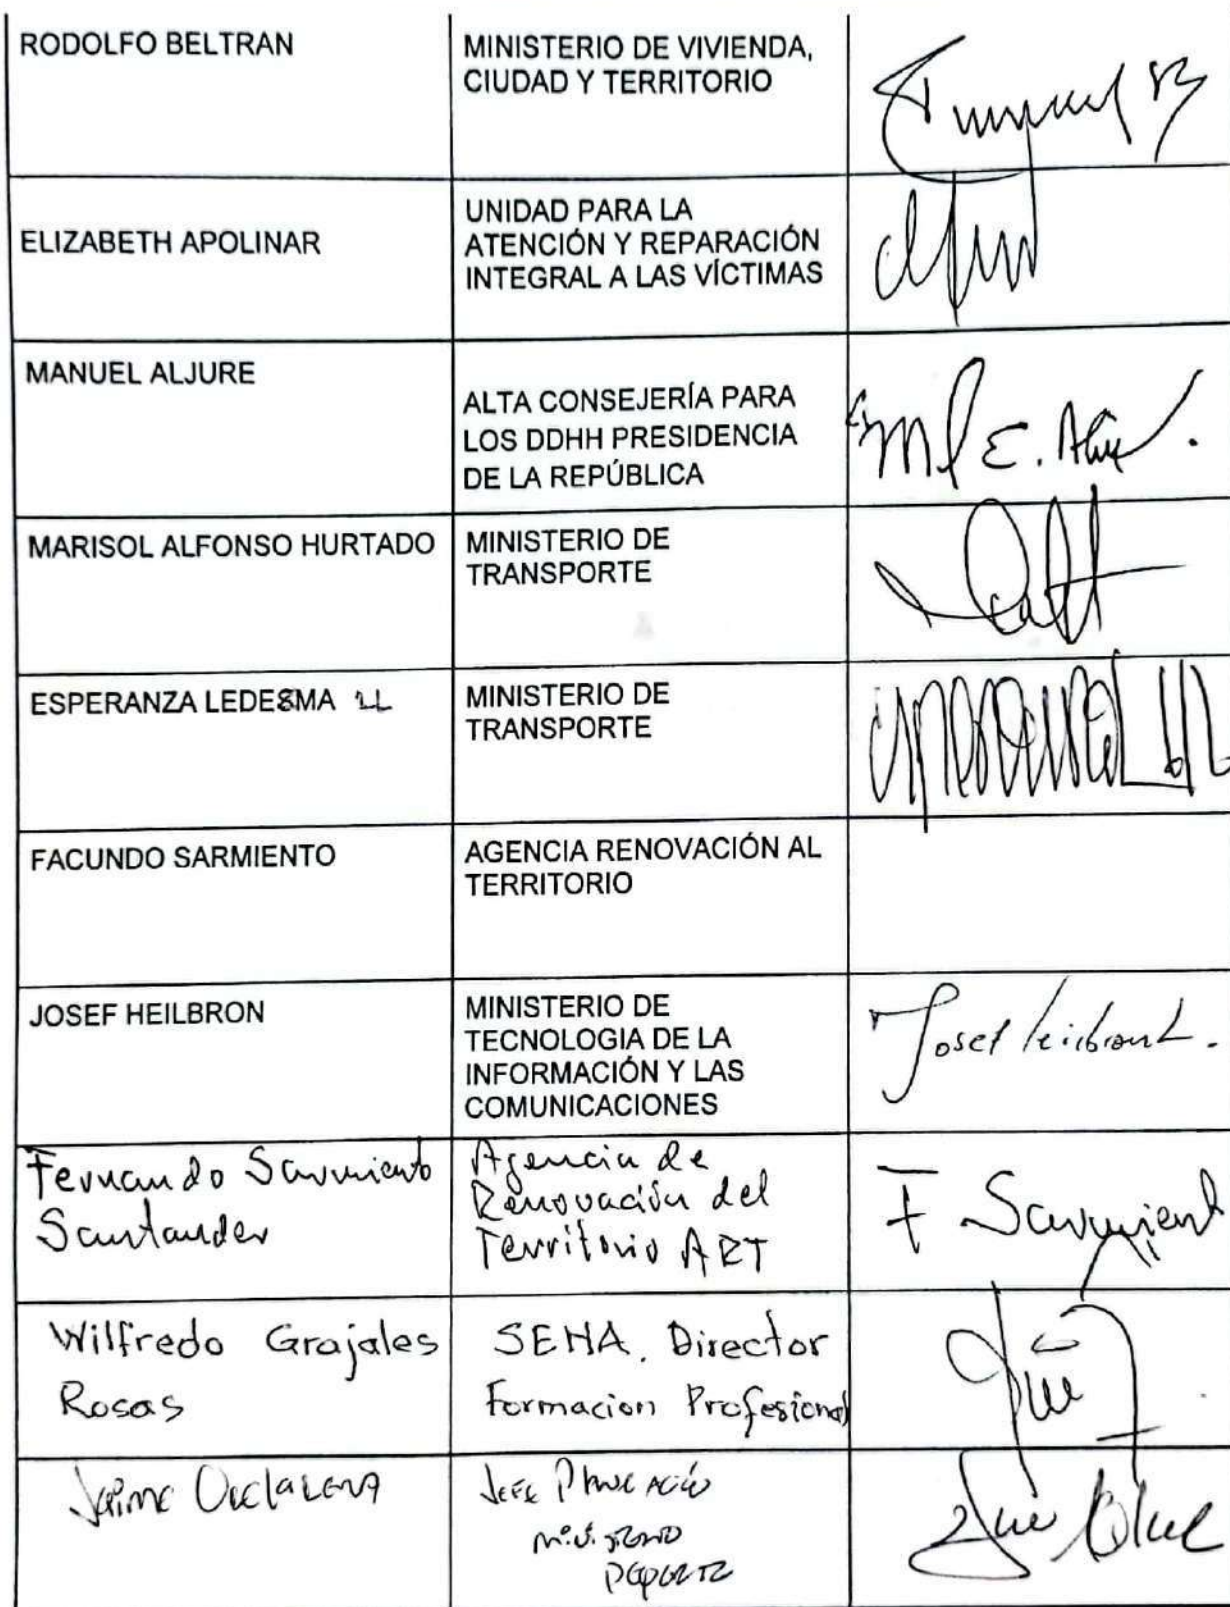 RODOLFO BELTRAN
MINISTERIO DE VIVIENDA,
CIUDAD Y TERRITORIO
ELIZABETH APOLINAR
UNIDAD PARA LA
ATENCIÓN Y REPARACIÓN
INTEGRAL A LAS VÍCTIMAS
MANUEL ALJURE
ALTA CONSEJERÍA PARA
LOS DDHH PRESIDENCIA
DE LA REPÚBLICA
MARISOL ALFONSO HURTADO
MINISTERIO DE
TRANSPORTE
ESPERANZA LEDESMA LL
MINISTERIO DE
TRANSPORTE
FACUNDO SARMIENTO
AGENCIA RENOVACIÓN AL
TERRITORIO
JOSEF HEILBRON
MINISTERIO DE
TECNOLOGIA DE LA
INFORMACIÓN Y LAS
COMUNICACIONES
Josef
Fernando Sarmiento
Santander
Agencia de
Renovación del
Territorio ART
F Sarmient
Wilfredo Grajales
Rosas
SENA. Director
Formacion Profesional
Jaime
Jefe